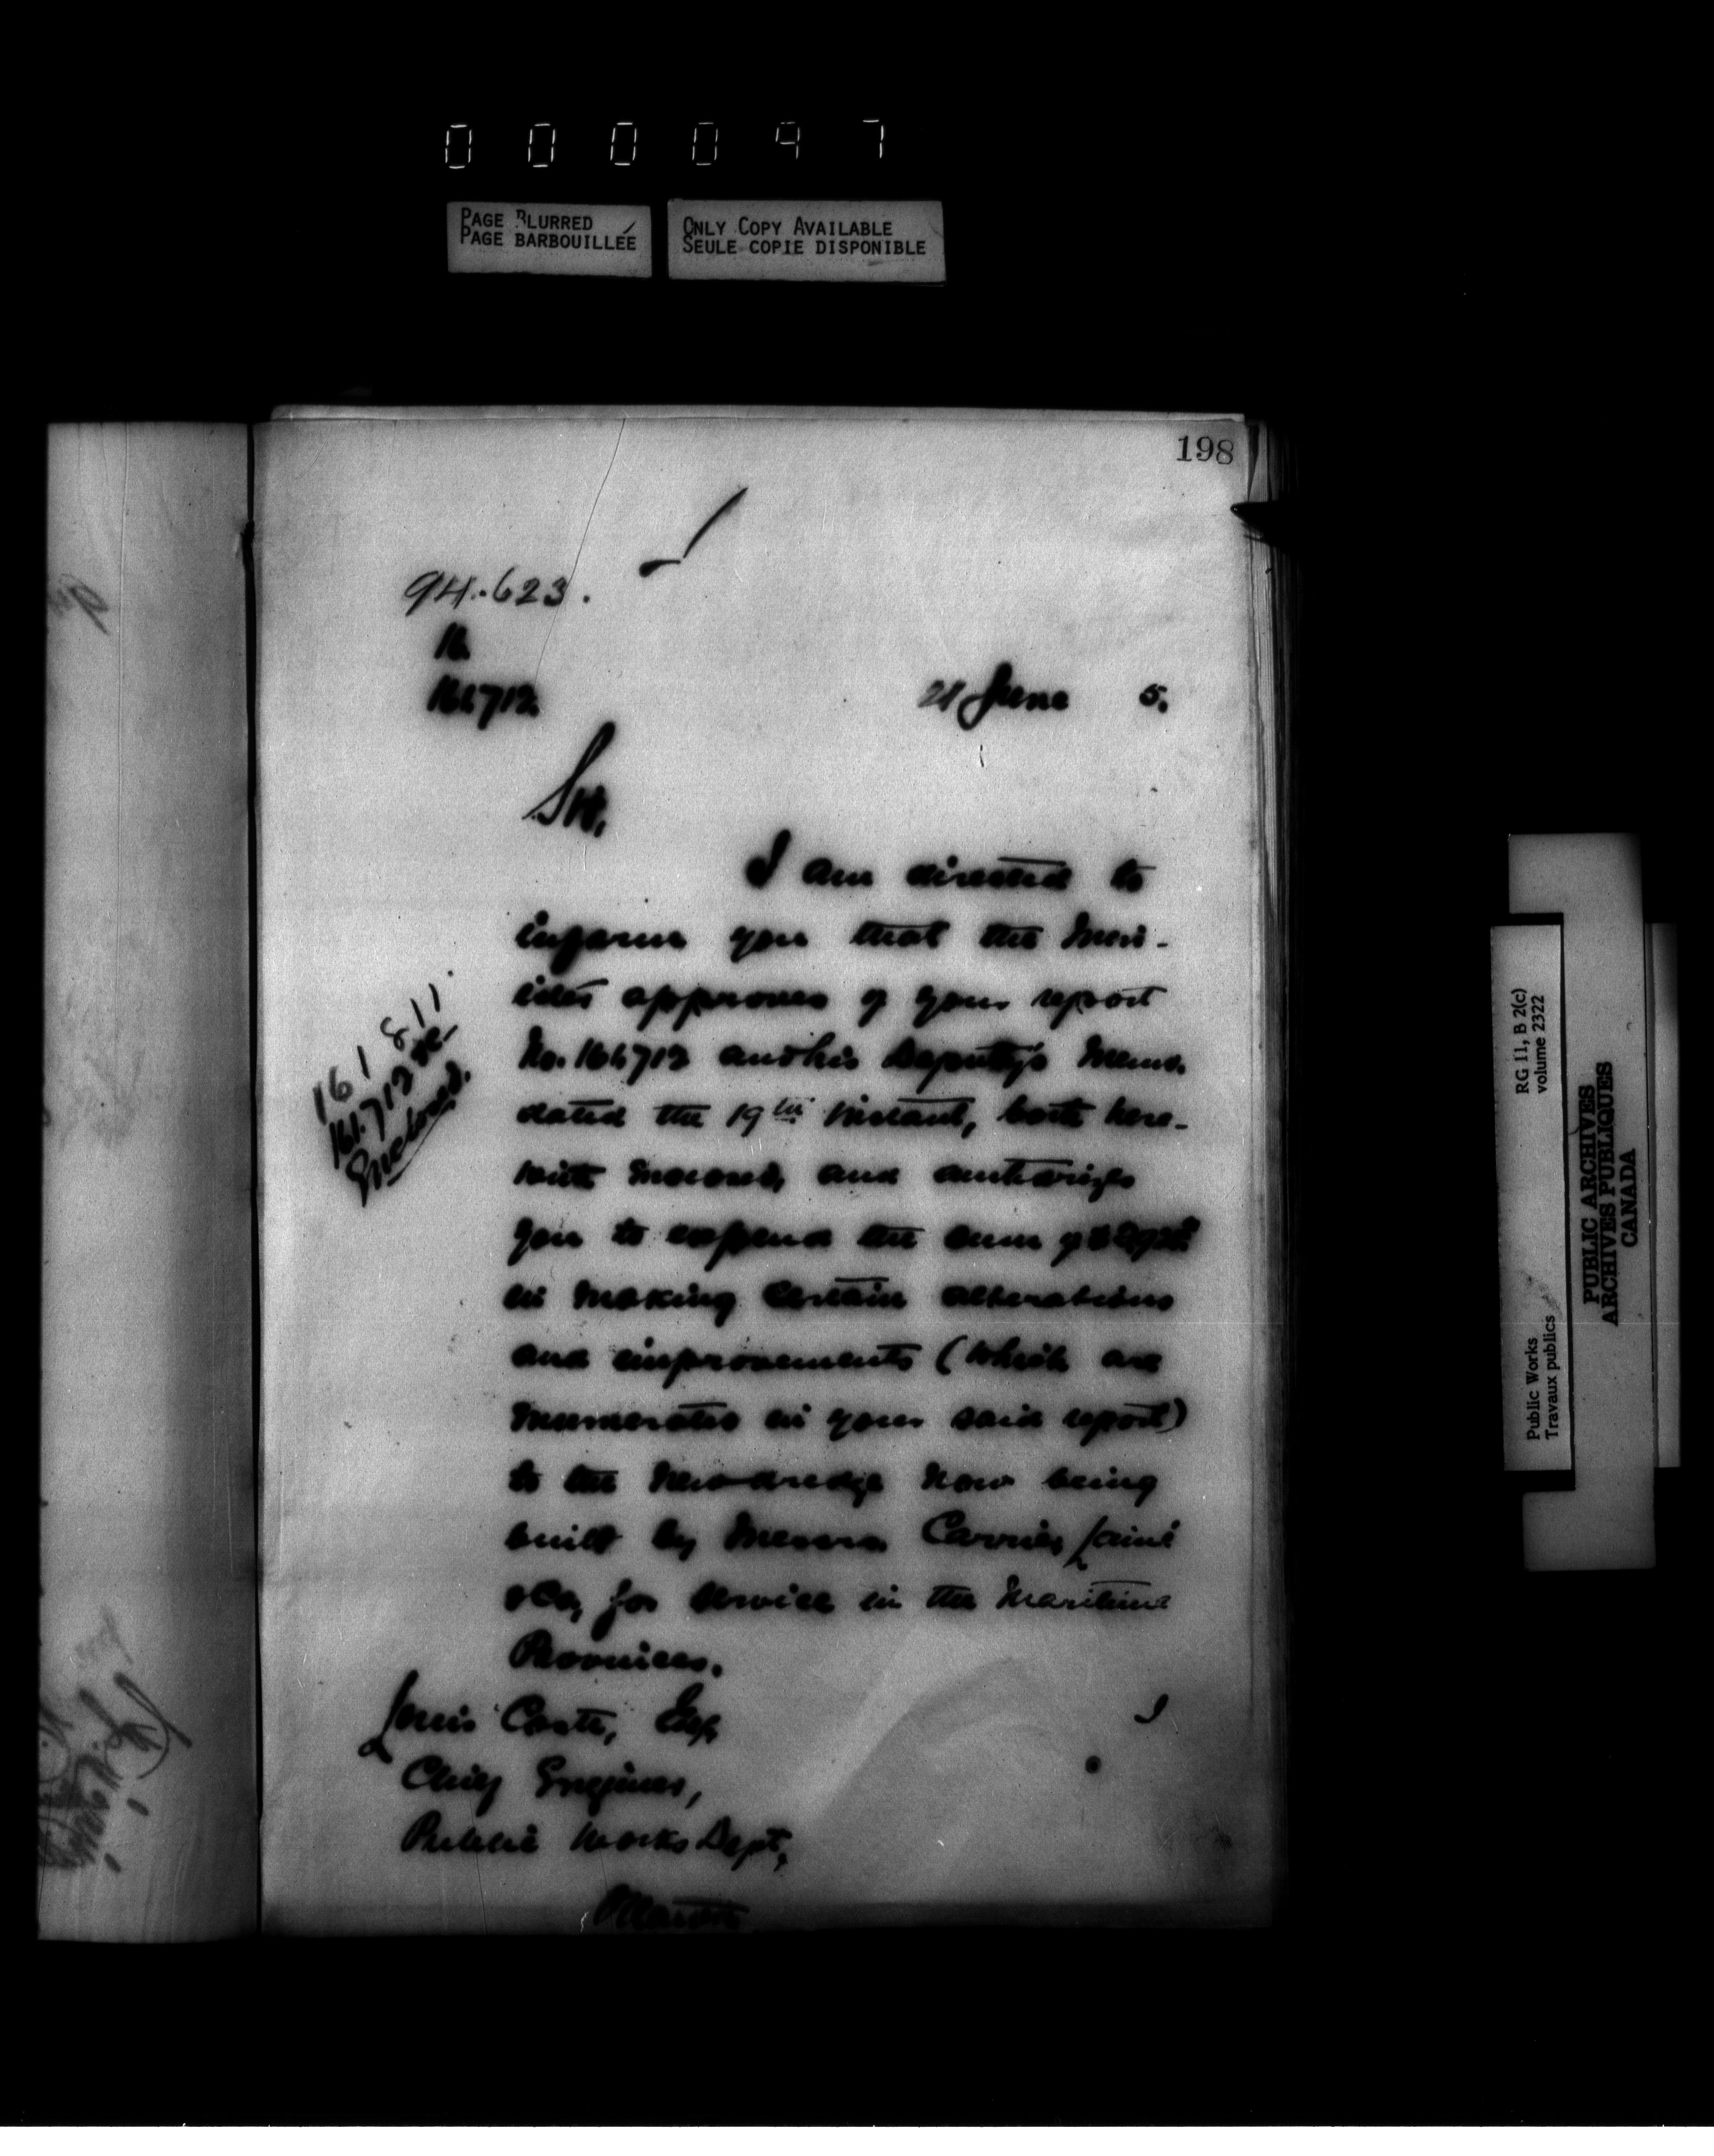 000097
PAGE BLURRED
PAGE BARBOUILLÉE
ONLY COPY AVAILABLE
SEULE COPIE DISPONIBLE
198
94.623.
16.
161712.
21 June 5.
Sir,
I am directed to
inform you that the Min-
ister approves of your report
No. 161712 and his Deputy's Memo.
dated the 19th instant, both here-
with enclosed, and authorizes
you to expend the sum of
in making certain alterations
and improvements (which are
enumerated in your said report)
to the new dredge now being
built by Messrs Carrier, Lainé
& Co, for service in the Maritime
Provinces.
161811
161.712
Enclosed.
I
Louis Coste, Esq
Chief Engineer,
Public Works Dept,
Ottawa
RG 11, B 2(c)
volume 2322
Public Works
Travaux publics
PUBLIC ARCHIVES
ARCHIVES PUBLIQUES
CANADA